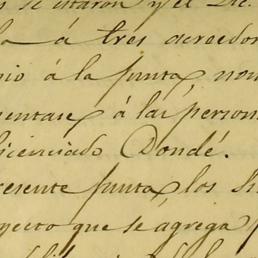 se citaron y el Lic.
la á tres acreedor
pio á la junta, nom
mentase á las person
licenciado Dondé.
resente junta los Su
yecto que se agrega